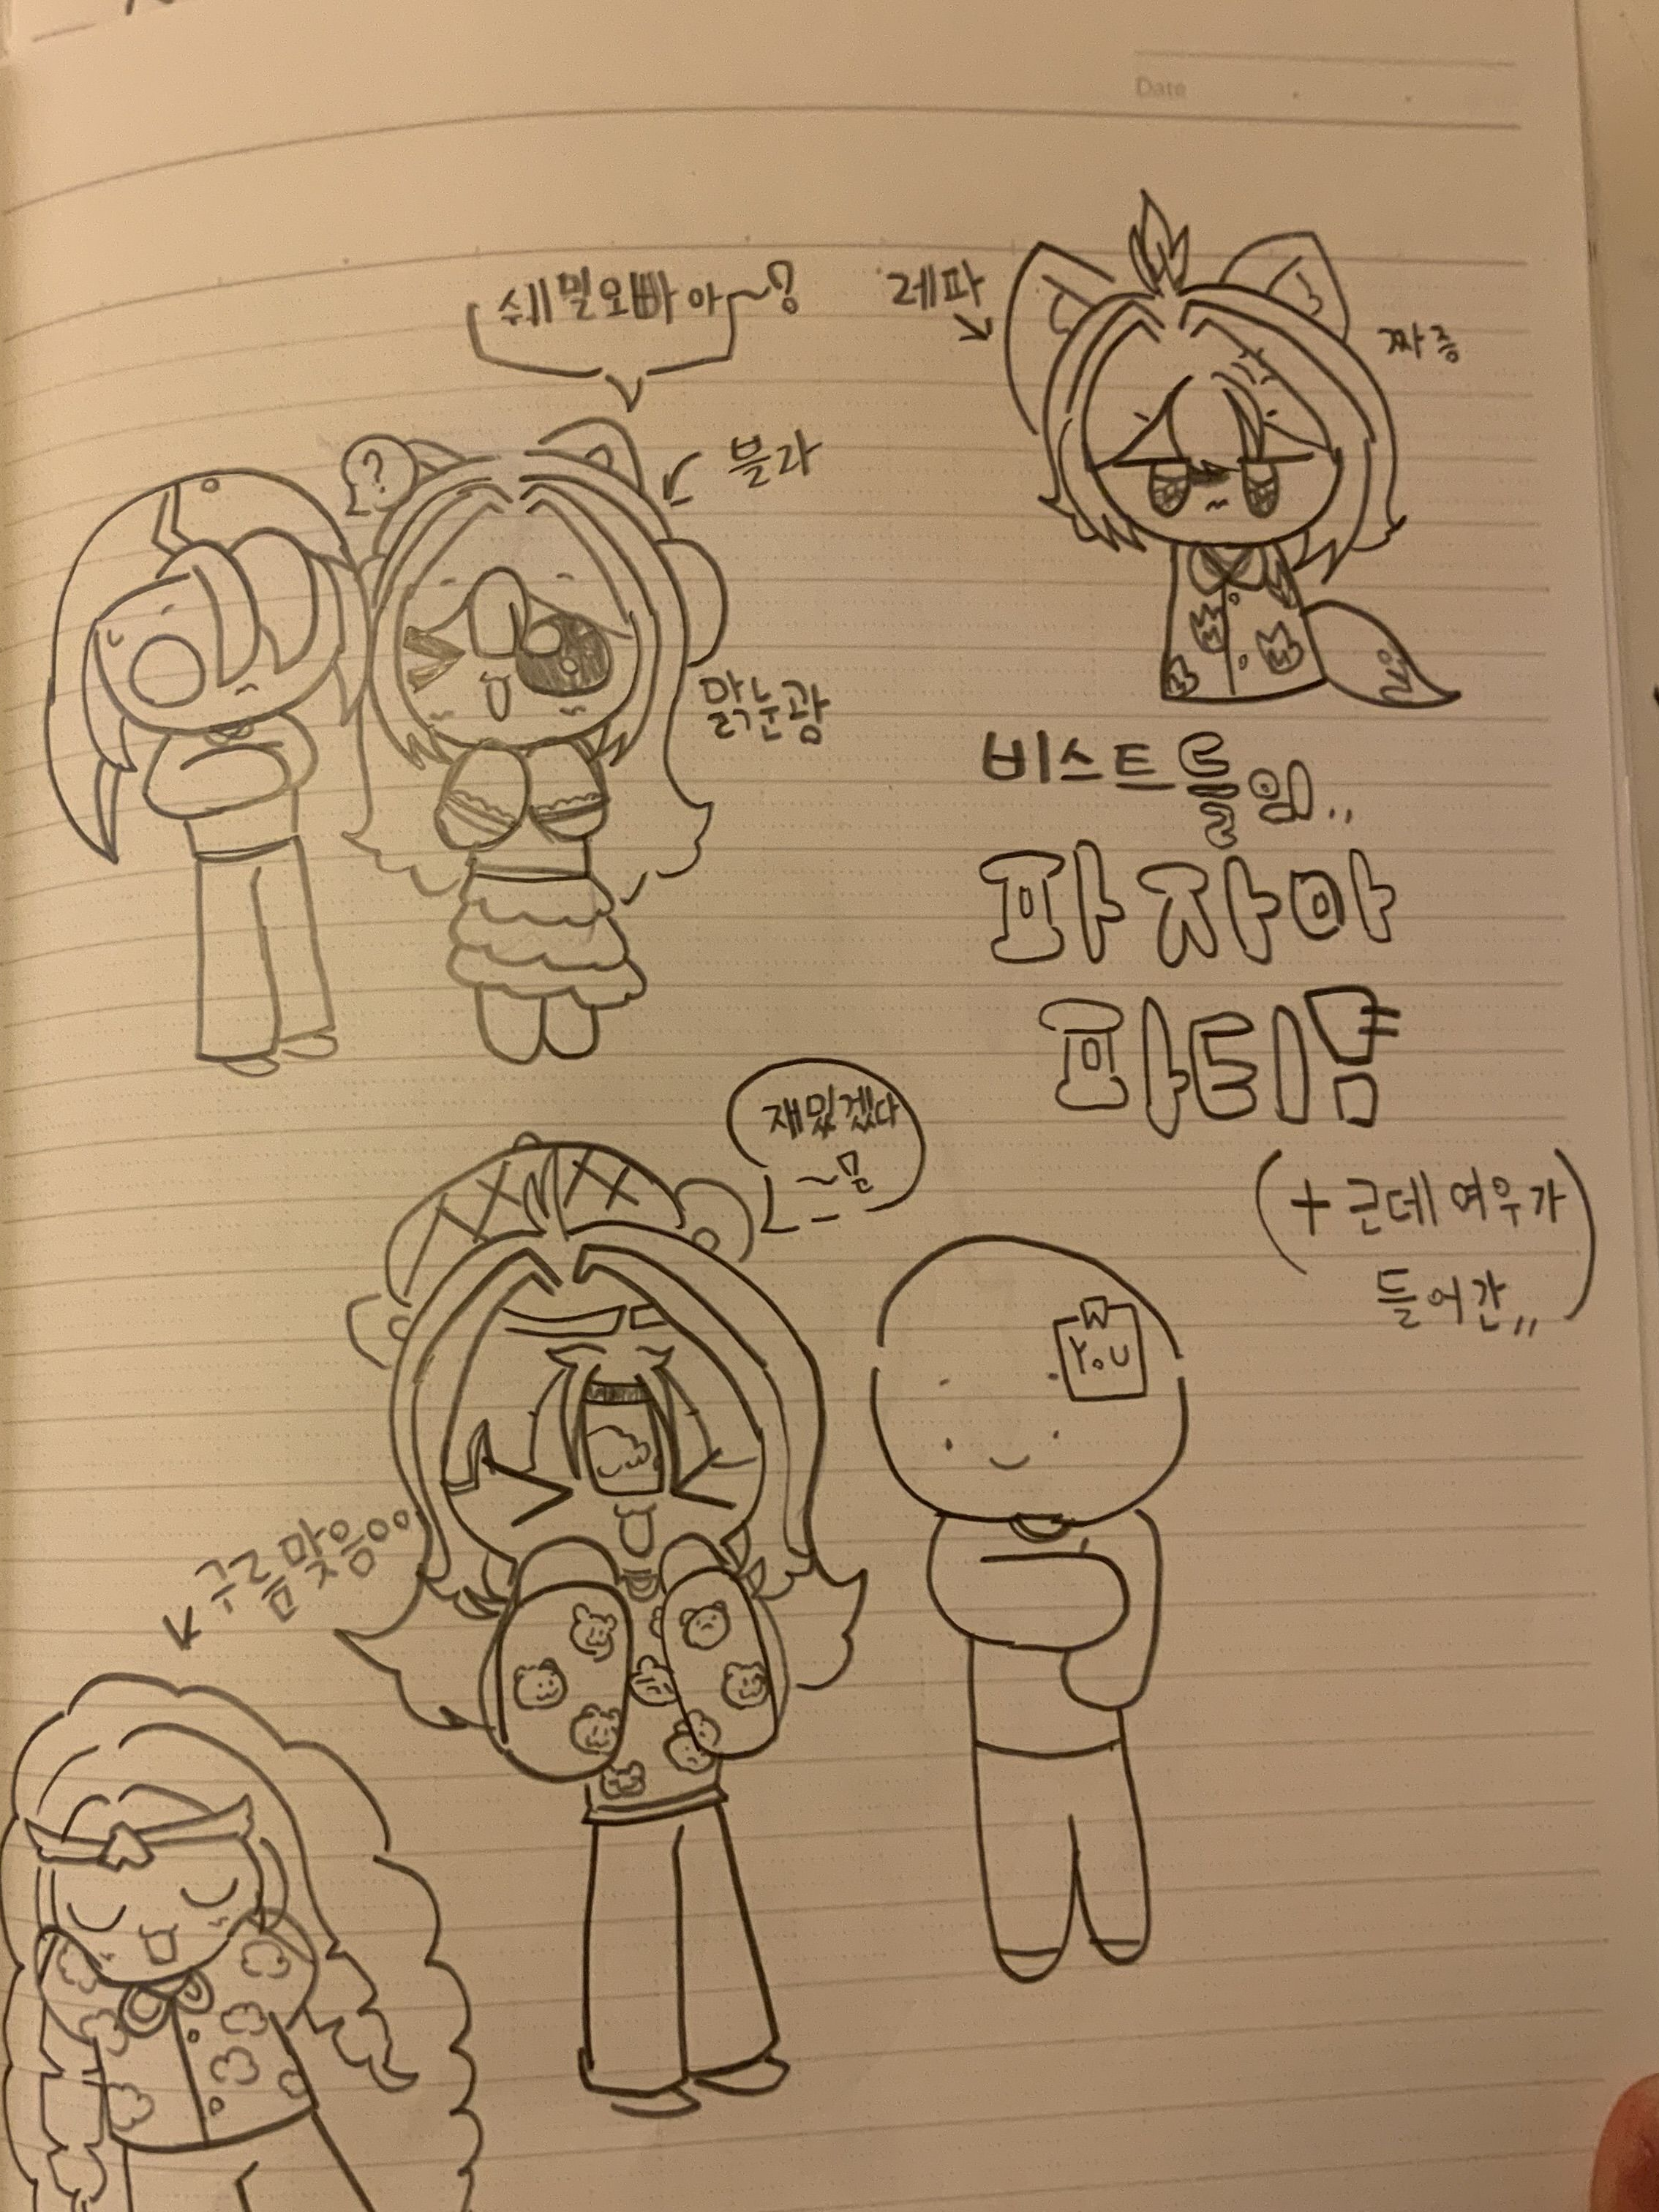 Date
쉐밀오빠아~?
레파
짜증
?
블라
맑눈광
비스트들임..
파자마
파티!
재밌겠다
~믐
(+근데 여우가
들어간,,)
W
YoU
구름맞음ㅇㅇ